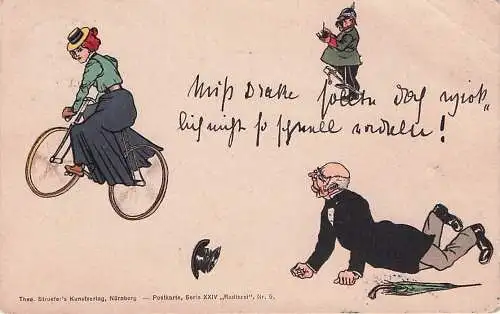 Miss Drake sollten doch
lich nicht so schnell radeln!
Theo. Stroefer's Kunstverlag, Nürnberg — Postkarte, Serie XXIV „Radlerei", Nr. 5.